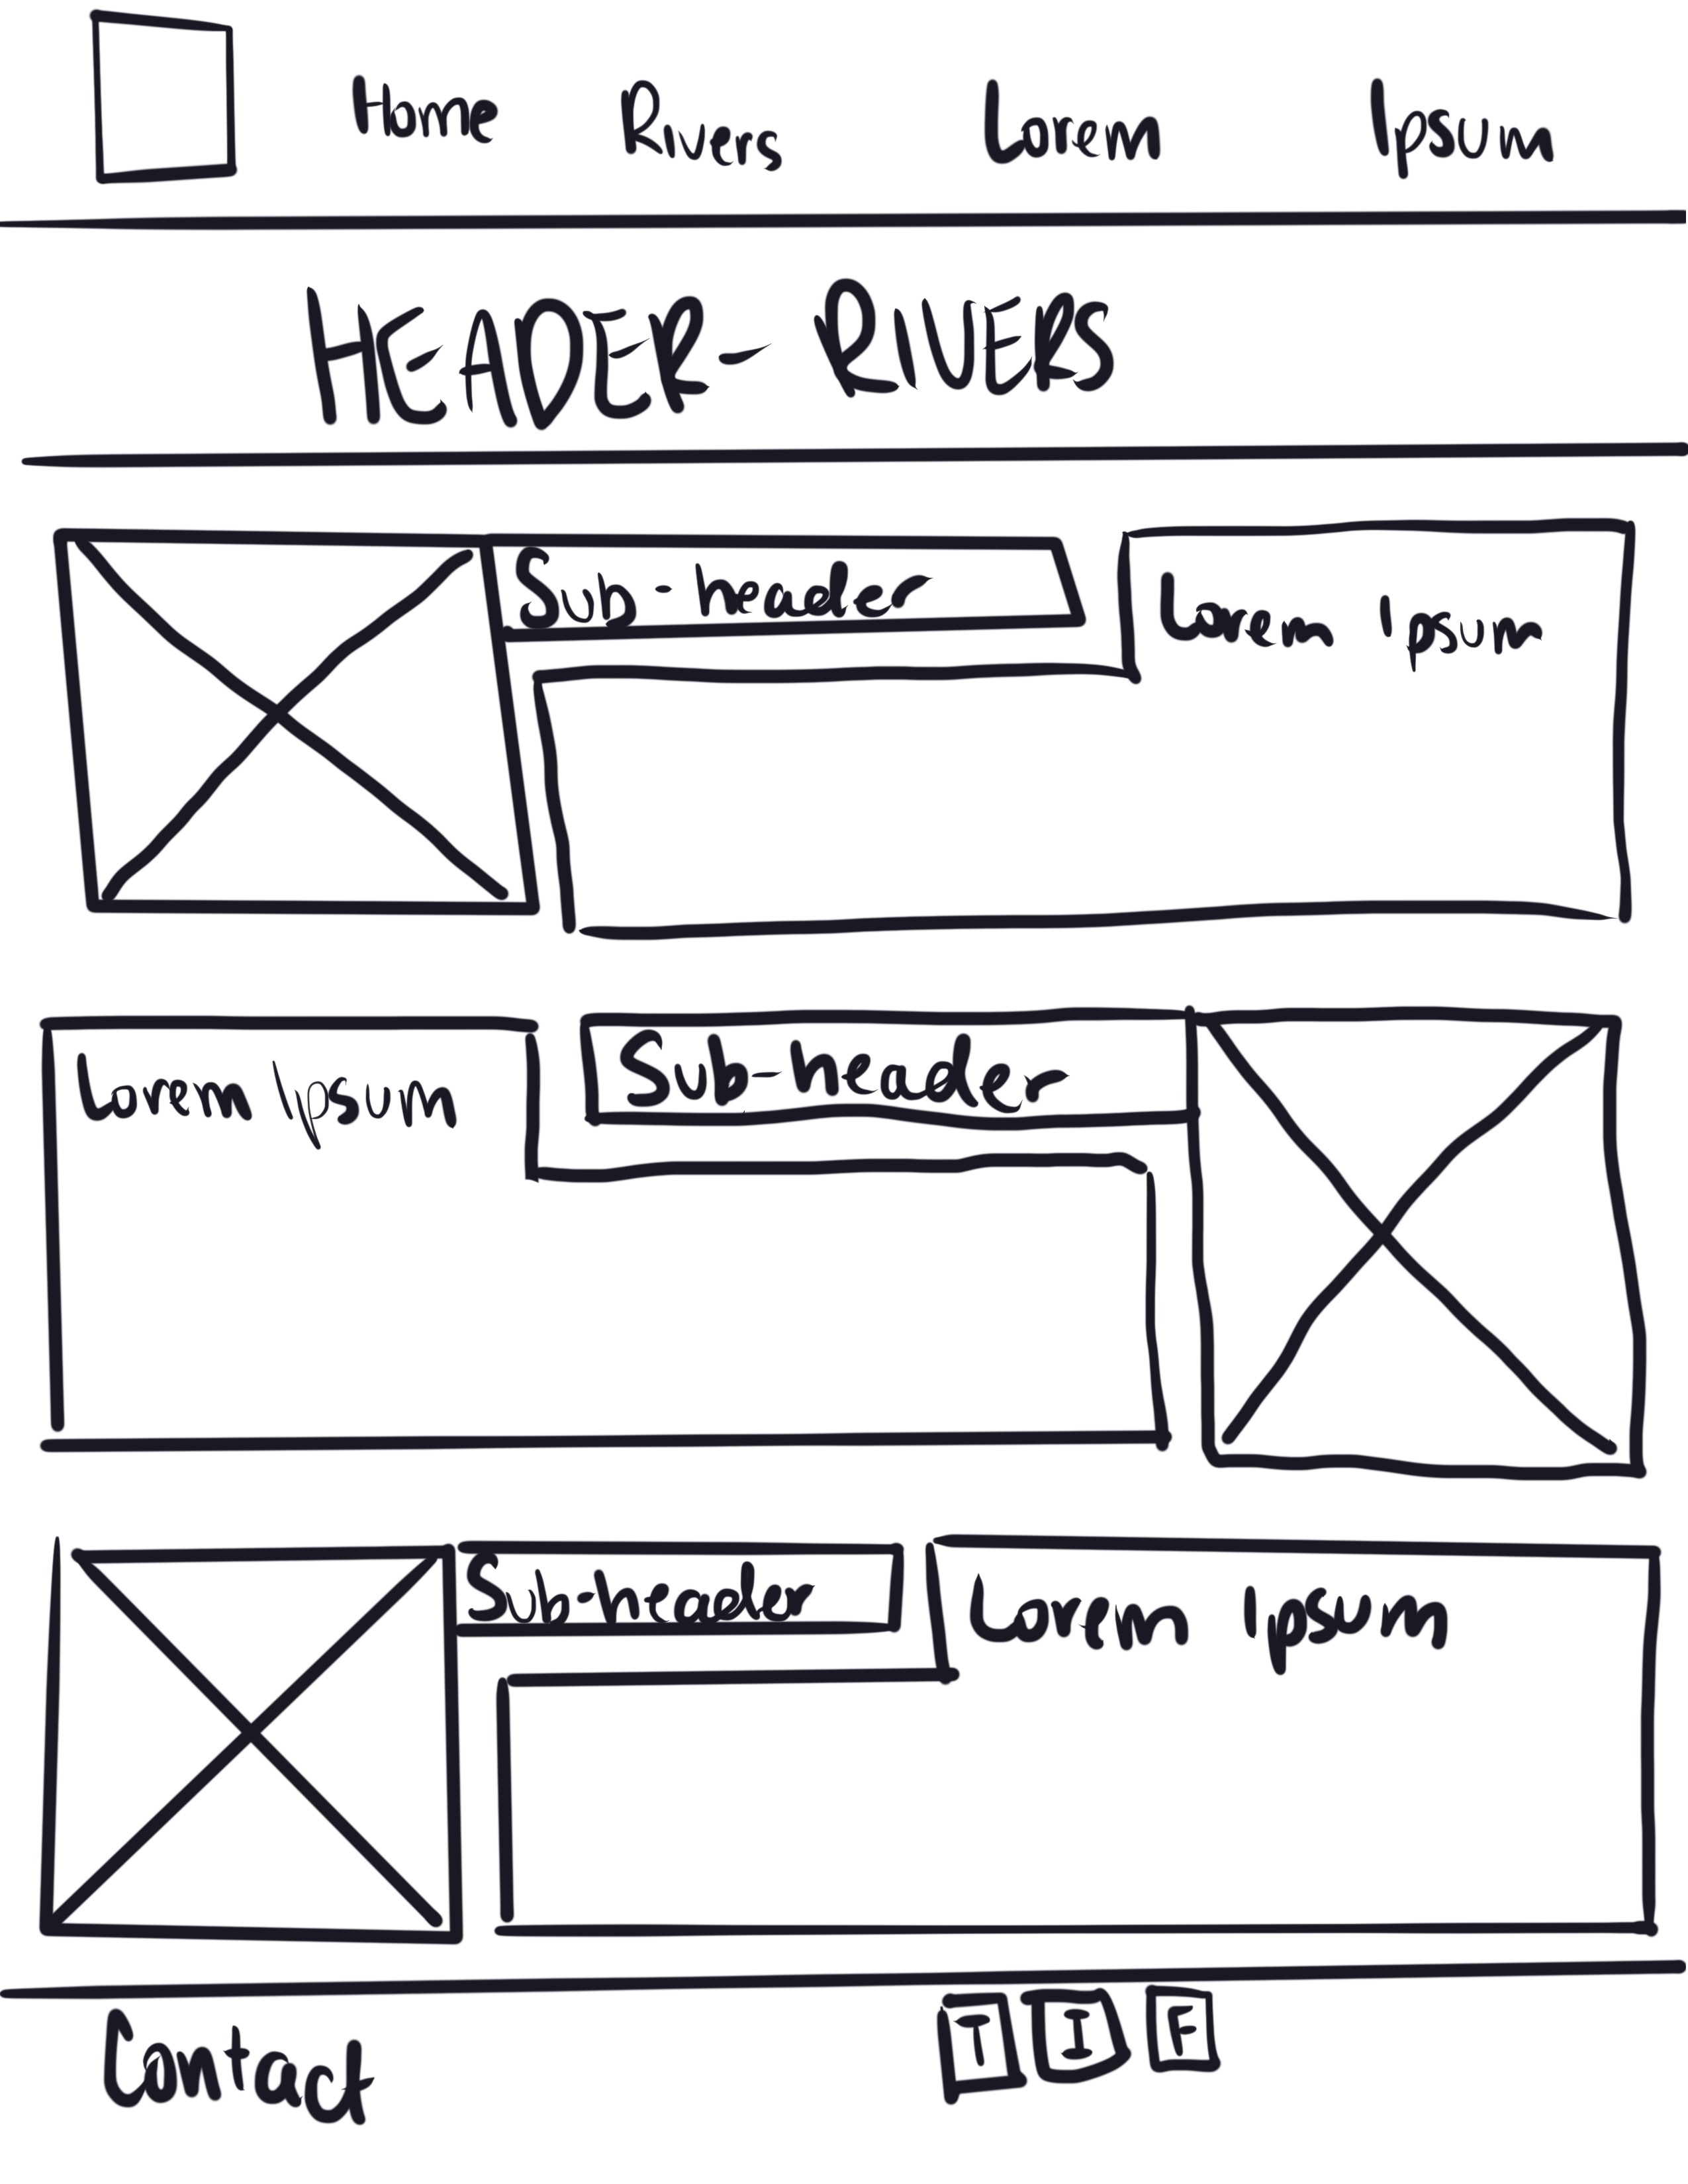 Home Rivers Lorem Ipsum
HEADER - RIVERS
Sub-header
Lorem Ipsum
Lorem Ipsum
Sub-header
Sub-header
Lorem Ipsum
Contact
T I F